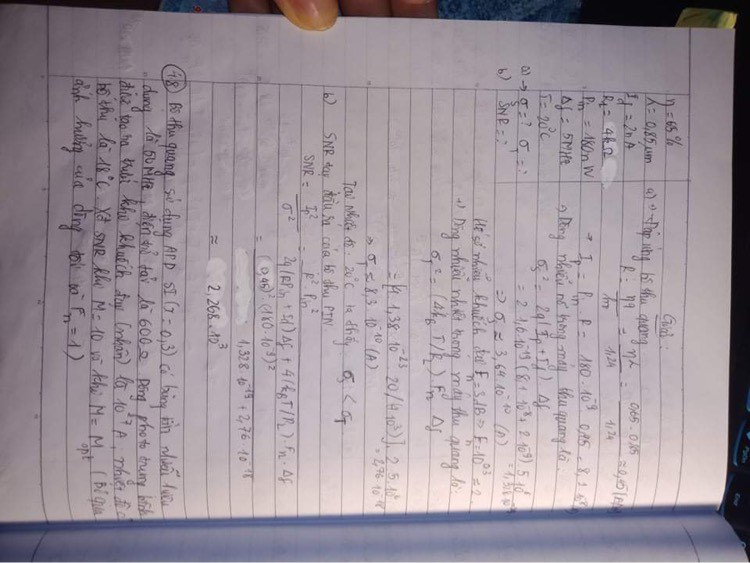 η = 65%
λ = 0,85 μm
I_d = 2nA
R_L = 4kΩ
P_in = 180nW
Δf = 5MHz
T = 20°C
a) → σ_s = ? σ_T = ?
b) SNR = ?
Giải:
a) +) Đáp ứng bộ thu quang
R = ηq/hν = ηλ/1,24 = 0,65 . 0,85/1,24 ≈ 0,45 (A/W)
→ I_p = P_in . R = 180.10^-9 . 0,45 = 8,1.10^-8
→ Dòng nhiễu nổ trong máy thu quang là:
σ_s² = 2q(I_p + I_d) . Δf
= 2. 1,6.10^-19 (8,1.10^-8 + 2.10^-9) . 5.10^6
= 1,328.10^-19
⇒ σ_s ≈ 3,64.10^-10 (A)
Hệ số nhiễu khuếch đại F_n = 3dB ⇒ F_n = 10^0,3 ≈ 2
+) Dòng nhiễu nhiệt trong máy thu quang là:
σ_T² = (4k_B T/R_L) . F_n Δf
= [4. 1,38. 10^-23 . 20/(4.10^3)]. 2.5.10^6
= 2,76.10^-18
⇒ σ_T ≈ 8,3.10^-10 (A)
Tại nhiệt độ 20°C ta thấy σ_s < σ_T
b) SNR tại đầu ra của bộ thu PIN
SNR = I_p²/σ² = R² P_in²/2q(RP_in + I_d)Δf + 4(k_B T/R_L).F_n.Δf
= (0,45)².(180.10^-9)²/1,328.10^-19 + 2,76.10^-18
≈ 2,268.10^3
Bộ thu quang sử dụng APD SI (x = 0,3) có băng tần nhiễu hiệu
dụng là 50MHz, điện trở tải là 600Ω Dòng photo trung bình
được tạo ra trước khi khuếch đại (nhân) là 10^-7 A, nhiệt độ ở
bộ thu là 18°C. SNR khi M = 10 và khi M = M_opt (Bỏ qua
ảnh hưởng của dòng tối và F_n = 1)